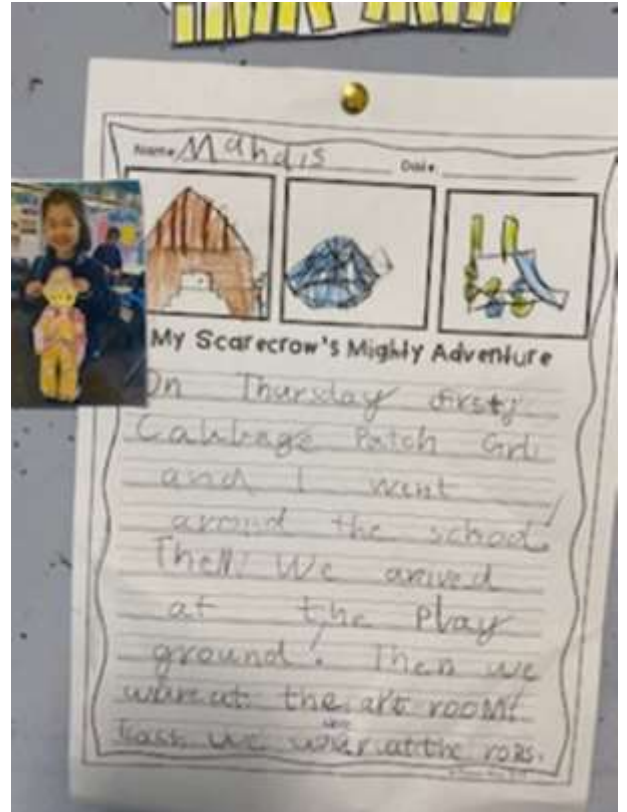 Name Mahdis Date
My Scarecrow's Mighty Adventure
On Thursday first,
Cabbage Patch Girl
and I went
around the school.
Then! We arived
at the Play
ground! Then we
ware at the art room!
we at the